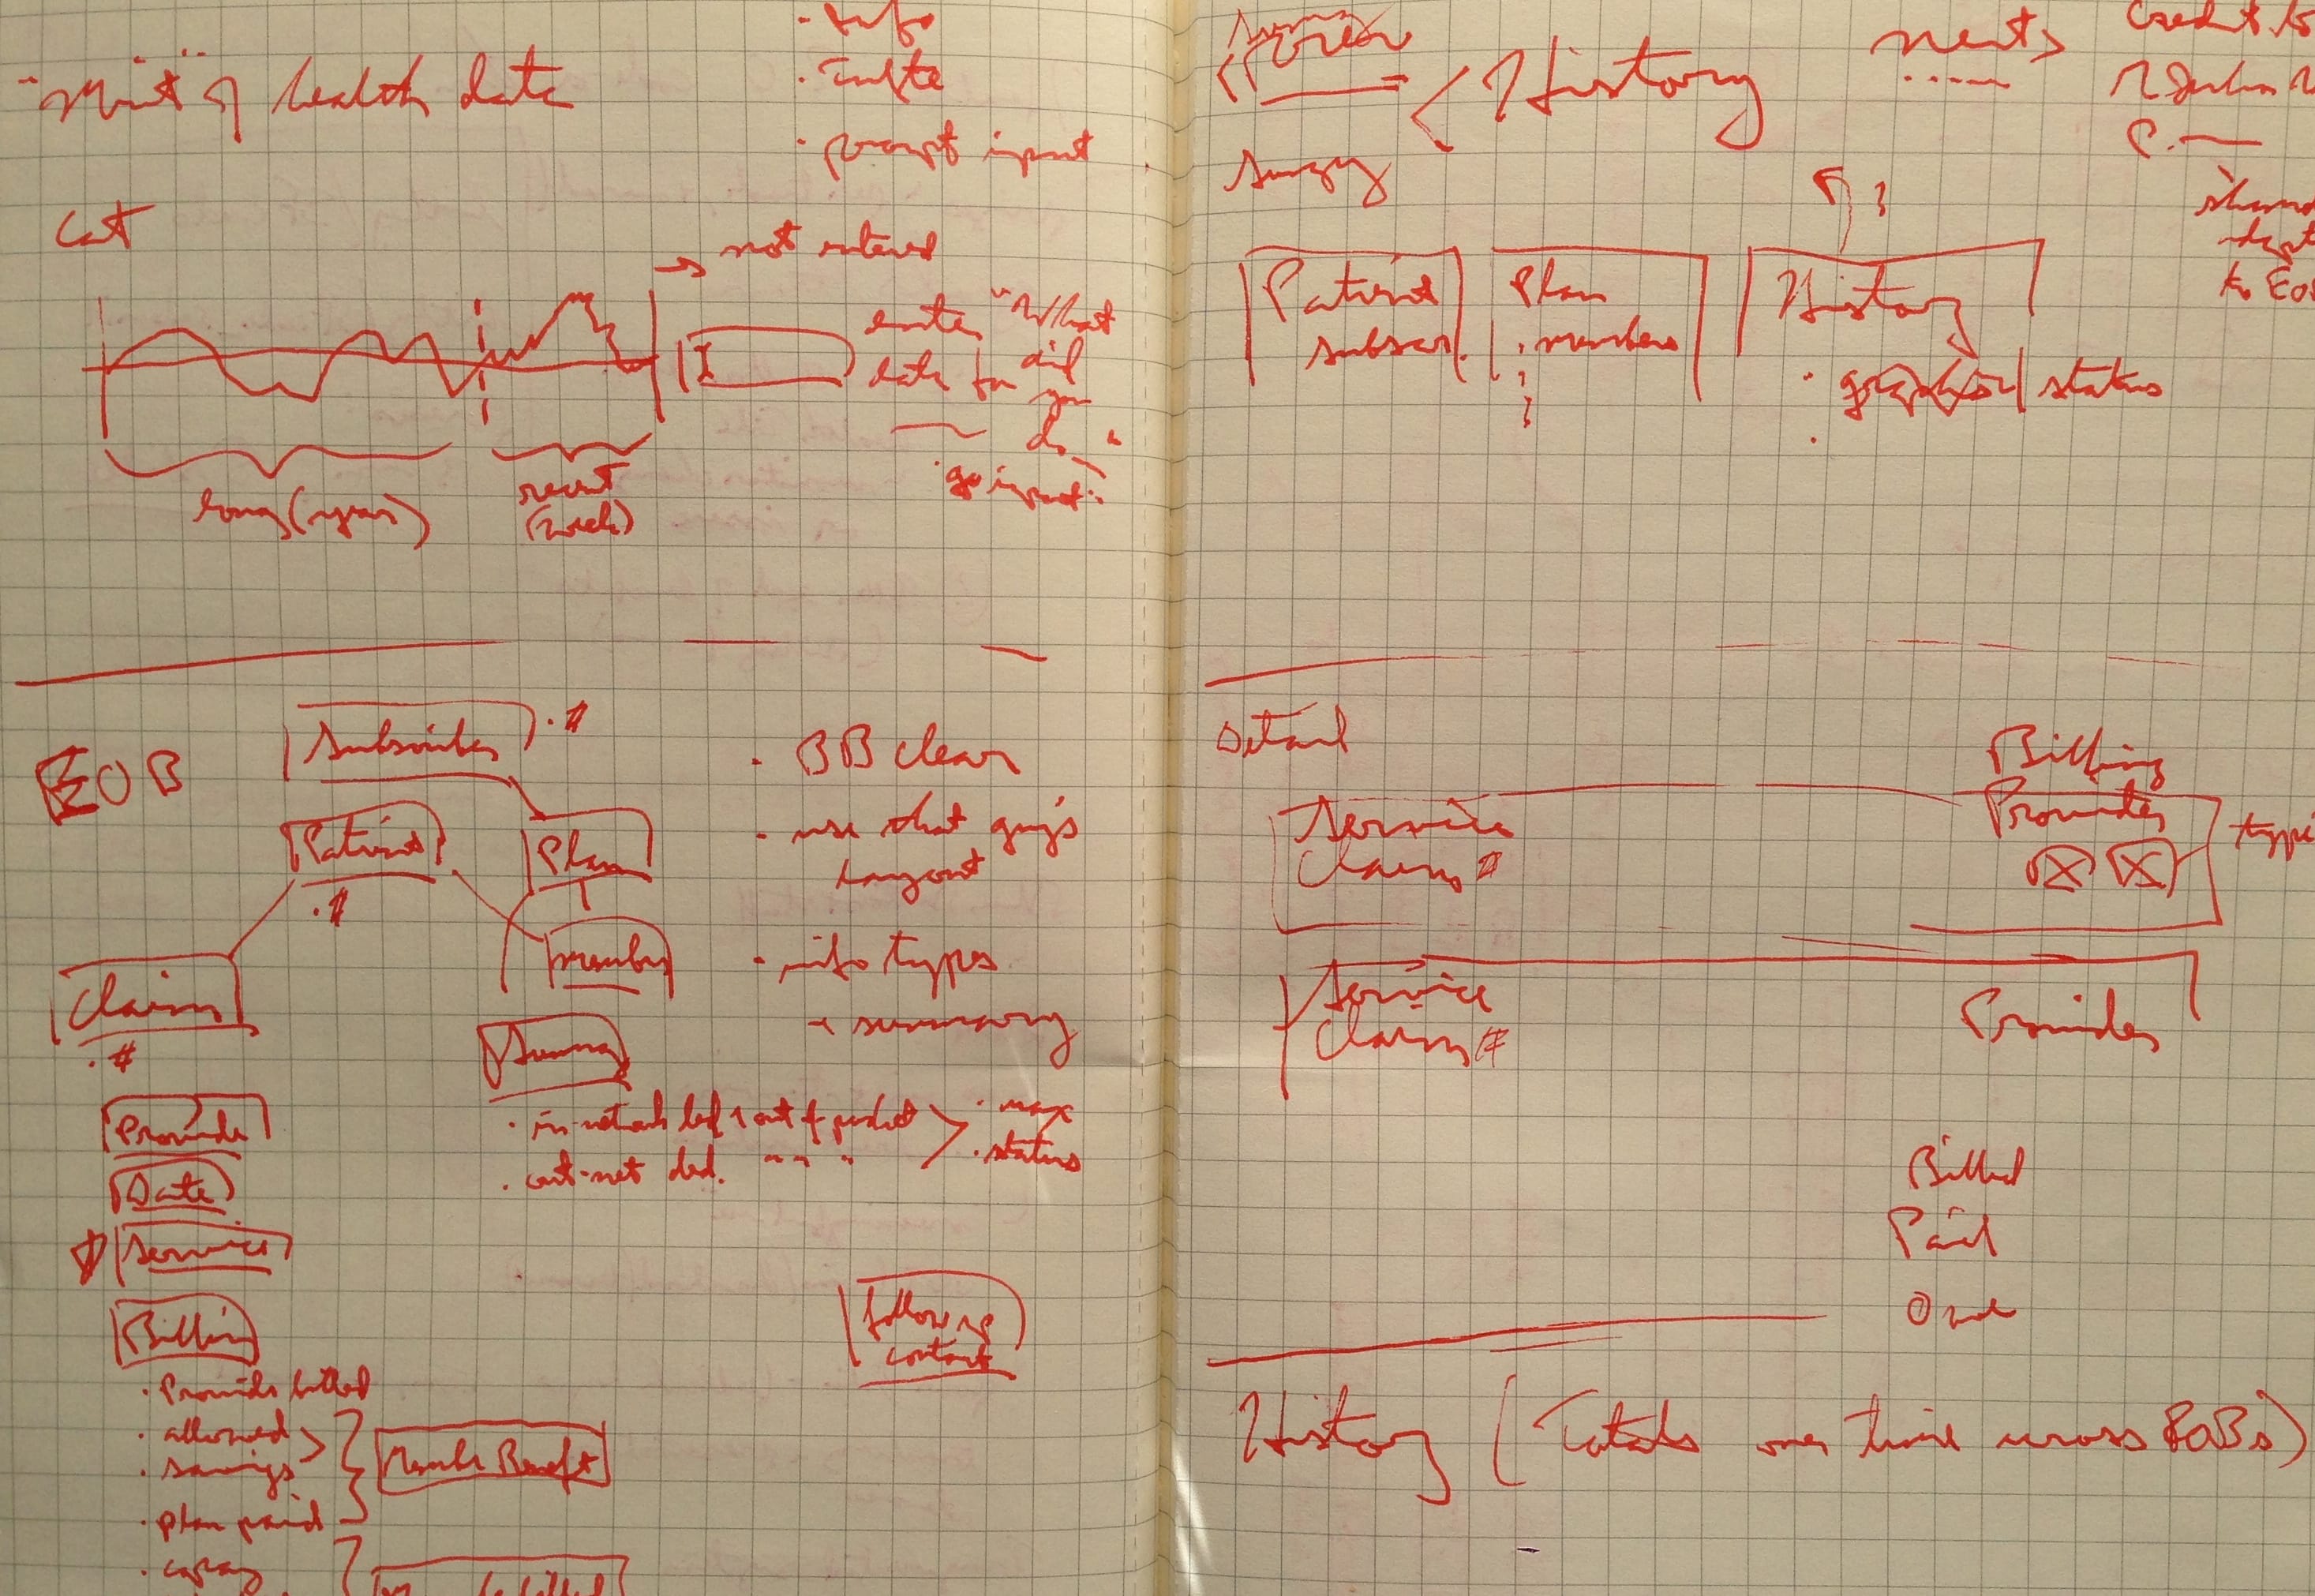 · info
"Mint" of health data
· prompt input
Cat
→ not entered
enter
data for
"What
did
you
do
"
go input
long (year)
recent
(week)
EOB
Subscriber · #
Patient
· #
Plan
member
Claim
· #
Provider
Date
Service
Billing
· Provider billed
· allowed
· savings
· plan paid
· copay
Benefit
· in-network ded + out of pocket
· out-net ded. " " "
· max
· status
· BB clear
· use that guy's
layout
· info types
+ summary
following
contact
< History
next >
Credit to
Patient
subscr.
Plan
· members
History
· status
to EOB
Detail
Service
Claim #
Billing
Provider
Service
Claim #
Provider
Billed
Paid
Owe
History (Totals over time across EOBs)